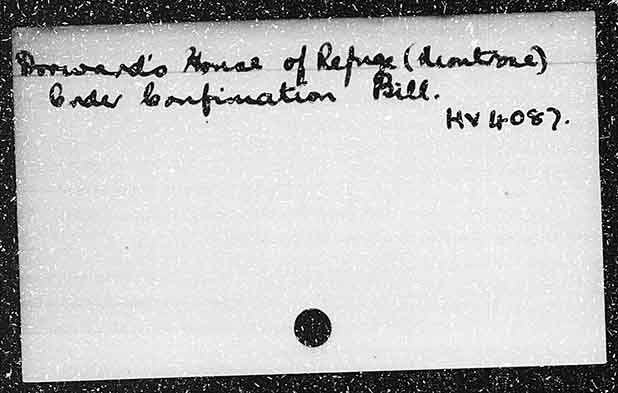 Dorward's House of Refuge (Montrose)
Order Confirmation Bill.
HV 4087.